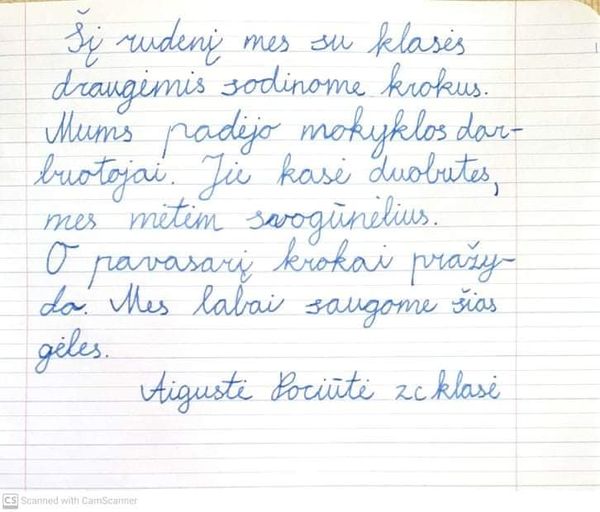 Šį rudenį mes su klasės
draugėmis sodinome krokus.
Mums padėjo mokyklos dar-
buotojai. Jie kasė duobutes,
mes mėtėm svogūnėlius.
O pavasarį krokai pražy-
do. Mes labai saugome šias
gėles.
Aigustė Pociūtė 2c klasė
CS Scanned with CamScanner